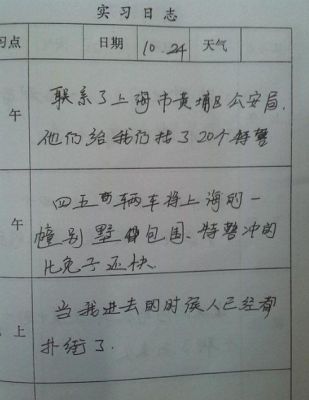 实习日志
习点 日期 10.24 天气
午
联系了上海市黄埔区公安局,
他们给我们找了20个特警
午
四五辆车将上海的一
幢别墅包围、特警冲的
比兔子还快.
上
当我进去的时侯人已经都
扑街了.